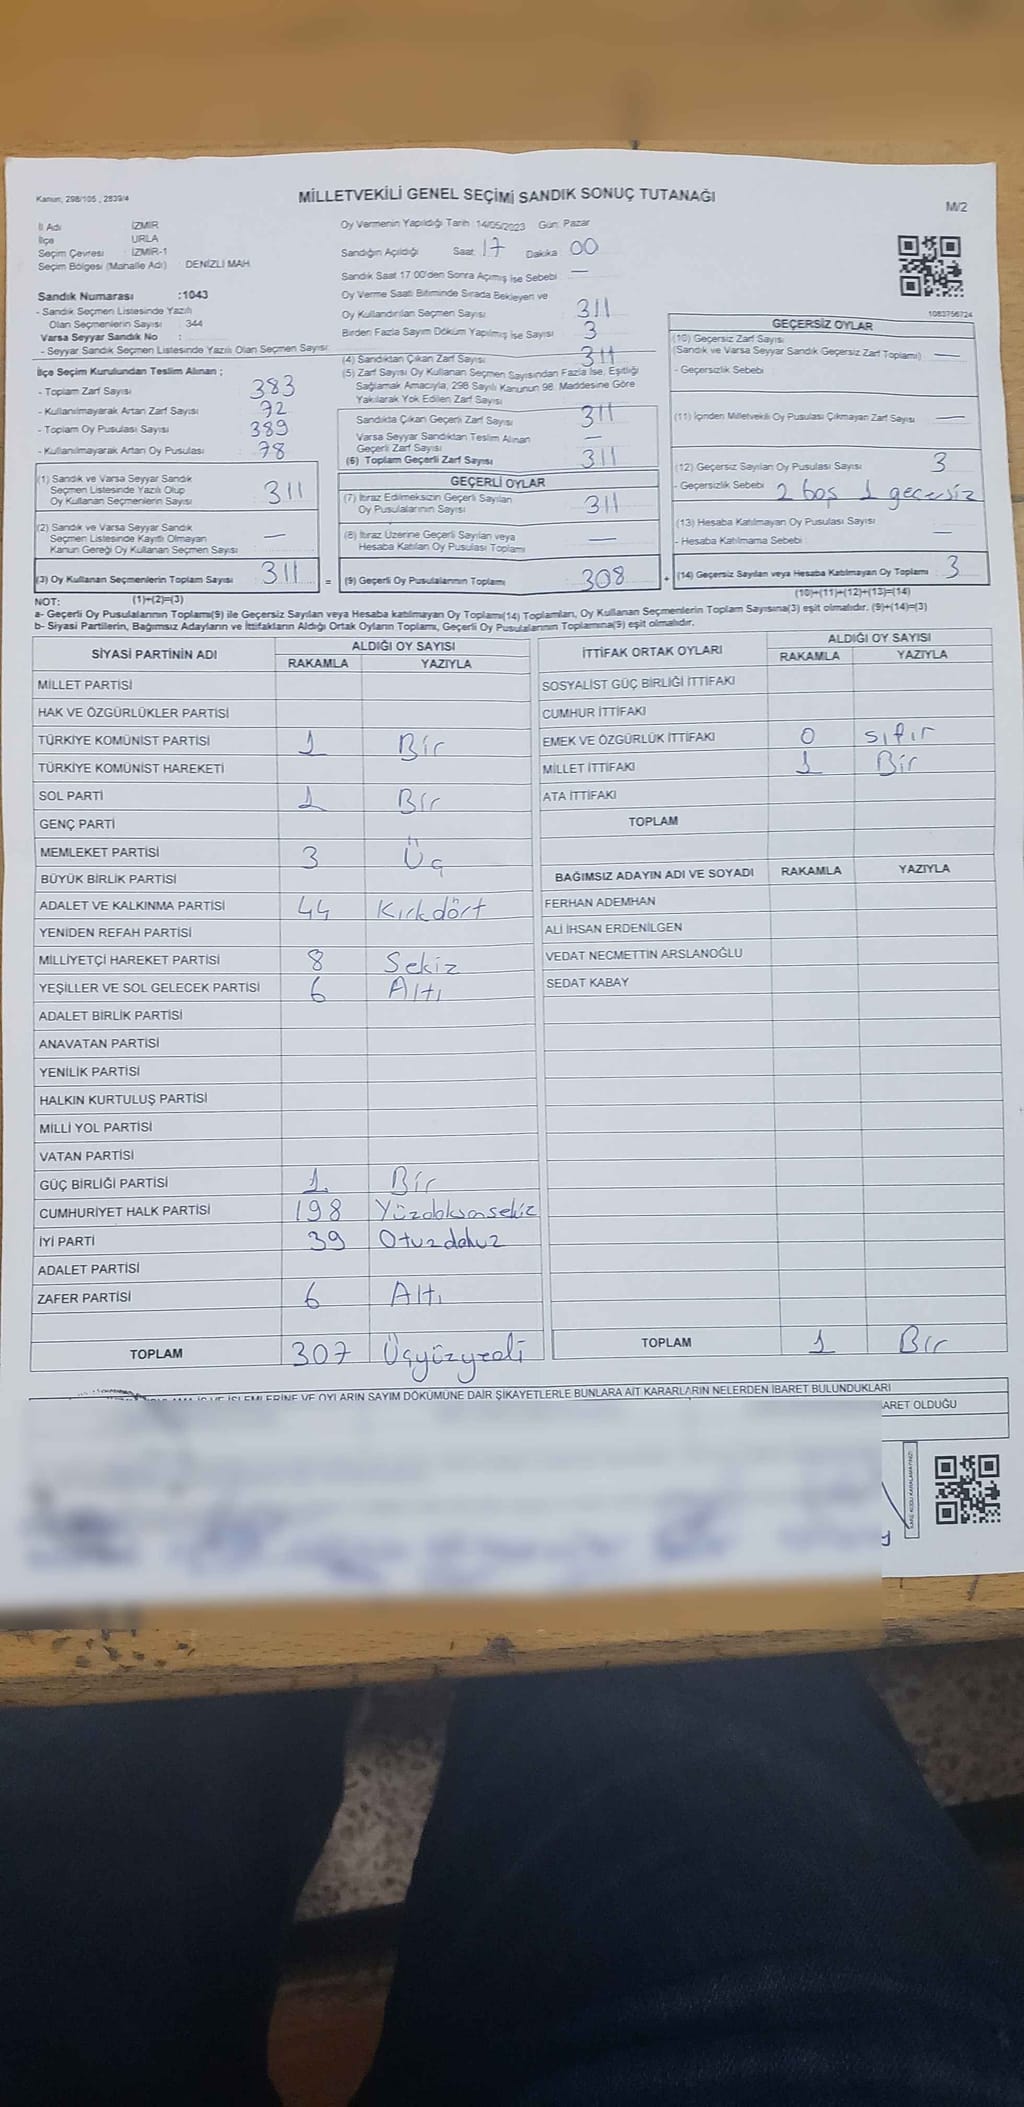 Kanun, 298/105 , 2839/4
MİLLETVEKİLİ GENEL SEÇİMİ SANDIK SONUÇ TUTANAĞI
M/2
İl Adı İZMİR
İlçe URLA
Seçim Çevresi : İZMİR-1
Seçim Bölgesi (Mahalle Adı) DENİZLİ MAH.
Sandık Numarası :1043
- Sandık Seçmen Listesinde Yazılı
Olan Seçmenlerin Sayısı : 344
Varsa Seyyar Sandık No :
- Seyyar Sandık Seçmen Listesinde Yazılı Olan Seçmen Sayısı:
İlçe Seçim Kurulundan Teslim Alınan ;
- Toplam Zarf Sayısı 383
- Kullanılmayarak Artan Zarf Sayısı 72
- Toplam Oy Pusulası Sayısı 389
- Kullanılmayarak Artan Oy Pusulası 78
(1) Sandık ve Varsa Seyyar Sandık
Seçmen Listesinde Yazılı Olup
Oy Kullanan Seçmenlerin Sayısı 311
(2) Sandık ve Varsa Seyyar Sandık
Seçmen Listesinde Kayıtlı Olmayan
Kanun Gereği Oy Kullanan Seçmen Sayısı —
(3) Oy Kullanan Seçmenlerin Toplam Sayısı 311 =
Oy Vermenin Yapıldığı Tarih : 14/05/2023 Gün: Pazar
Sandığın Açıldığı Saat 17 Dakika 00
Sandık Saat 17:00'den Sonra Açımış İse Sebebi —
Oy Verme Saati Bitiminde Sırada Bekleyen ve
Oy Kullandırılan Seçmen Sayısı 311
Birden Fazla Sayım Döküm Yapılmış İse Sayısı 3
(4) Sandıktan Çıkan Zarf Sayısı 311
(5) Zarf Sayısı Oy Kullanan Seçmen Sayısından Fazla İse, Eşitliği
Sağlamak Amacıyla, 298 Sayılı Kanunun 98. Maddesine Göre
Yakılarak Yok Edilen Zarf Sayısı
Sandıkta Çıkan Geçerli Zarf Sayısı 311
Varsa Seyyar Sandıktan Teslim Alınan
Geçerli Zarf Sayısı —
(6) Toplam Geçerli Zarf Sayısı 311
GEÇERLİ OYLAR
(7) İtiraz Edilmeksizin Geçerli Sayılan
Oy Pusulalarının Sayısı 311
(8) İtiraz Üzerine Geçerli Sayılan veya
Hesaba Katılan Oy Pusulası Toplamı —
(9) Geçerli Oy Pusulalarının Toplamı 308 +
1083756724
GEÇERSİZ OYLAR
(10) Geçersiz Zarf Sayısı
(Sandık ve Varsa Seyyar Sandık Geçersiz Zarf Toplamı) —
- Geçersizlik Sebebi
(11) İçinden Milletvekili Oy Pusulası Çıkmayan Zarf Sayısı —
(12) Geçersiz Sayılan Oy Pusulası Sayısı 3
- Geçersizlik Sebebi 2 boş 1 geçersiz
(13) Hesaba Katılmayan Oy Pusulası Sayısı —
- Hesaba Katılmama Sebebi
(14) Geçersiz Sayılan veya Hesaba Katılmayan Oy Toplamı : 3
NOT: (1)+(2)=(3) (10)+(11)+(12)+(13)=(14)
a- Geçerli Oy Pusulalarının Toplamı(9) ile Geçersiz Sayılan veya Hesaba katılmayan Oy Toplamı(14) Toplamları, Oy Kullanan Seçmenlerin Toplam Sayısına(3) eşit olmalıdır. (9)+(14)=(3)
b- Siyasi Partilerin, Bağımsız Adayların ve İttifakların Aldığı Ortak Oyların Toplamı, Geçerli Oy Pusulalarının Toplamına(9) eşit olmalıdır.
SİYASİ PARTİNİN ADI ALDIĞI OY SAYISI
RAKAMLA YAZIYLA
MİLLET PARTİSİ
HAK VE ÖZGÜRLÜKLER PARTİSİ
TÜRKİYE KOMÜNİST PARTİSİ 1 Bir
TÜRKİYE KOMÜNİST HAREKETİ
SOL PARTİ 1 Bir
GENÇ PARTİ
MEMLEKET PARTİSİ 3 Üç
BÜYÜK BİRLİK PARTİSİ
ADALET VE KALKINMA PARTİSİ 44 Kırkdört
YENİDEN REFAH PARTİSİ
MİLLİYETÇİ HAREKET PARTİSİ 8 Sekiz
YEŞİLLER VE SOL GELECEK PARTİSİ 6 Altı
ADALET BİRLİK PARTİSİ
ANAVATAN PARTİSİ
YENİLİK PARTİSİ
HALKIN KURTULUŞ PARTİSİ
MİLLİ YOL PARTİSİ
VATAN PARTİSİ
GÜÇ BİRLİĞİ PARTİSİ 1 Bir
CUMHURİYET HALK PARTİSİ 198 Yüzdoksansekiz
İYİ PARTİ 39 Otuzdokuz
ADALET PARTİSİ
ZAFER PARTİSİ 6 Altı
TOPLAM 307 Üçyüzyedi
İTTİFAK ORTAK OYLARI ALDIĞI OY SAYISI
RAKAMLA YAZIYLA
SOSYALİST GÜÇ BİRLİĞİ İTTİFAKI
CUMHUR İTTİFAKI
EMEK VE ÖZGÜRLÜK İTTİFAKI 0 sıfır
MİLLET İTTİFAKI 1 Bir
ATA İTTİFAKI
TOPLAM
BAĞIMSIZ ADAYIN ADI VE SOYADI RAKAMLA YAZIYLA
FERHAN ADEMHAN
ALİ İHSAN ERDENİLGEN
VEDAT NECMETTİN ARSLANOĞLU
SEDAT KABAY
TOPLAM 1 Bir
İŞLEMLERİNE VE OYLARIN SAYIM DÖKÜMÜNE DAİR ŞİKAYETLERLE BUNLARA AİT KARARLARIN NELERDEN İBARET BULUNDUKLARI
OLDUĞU